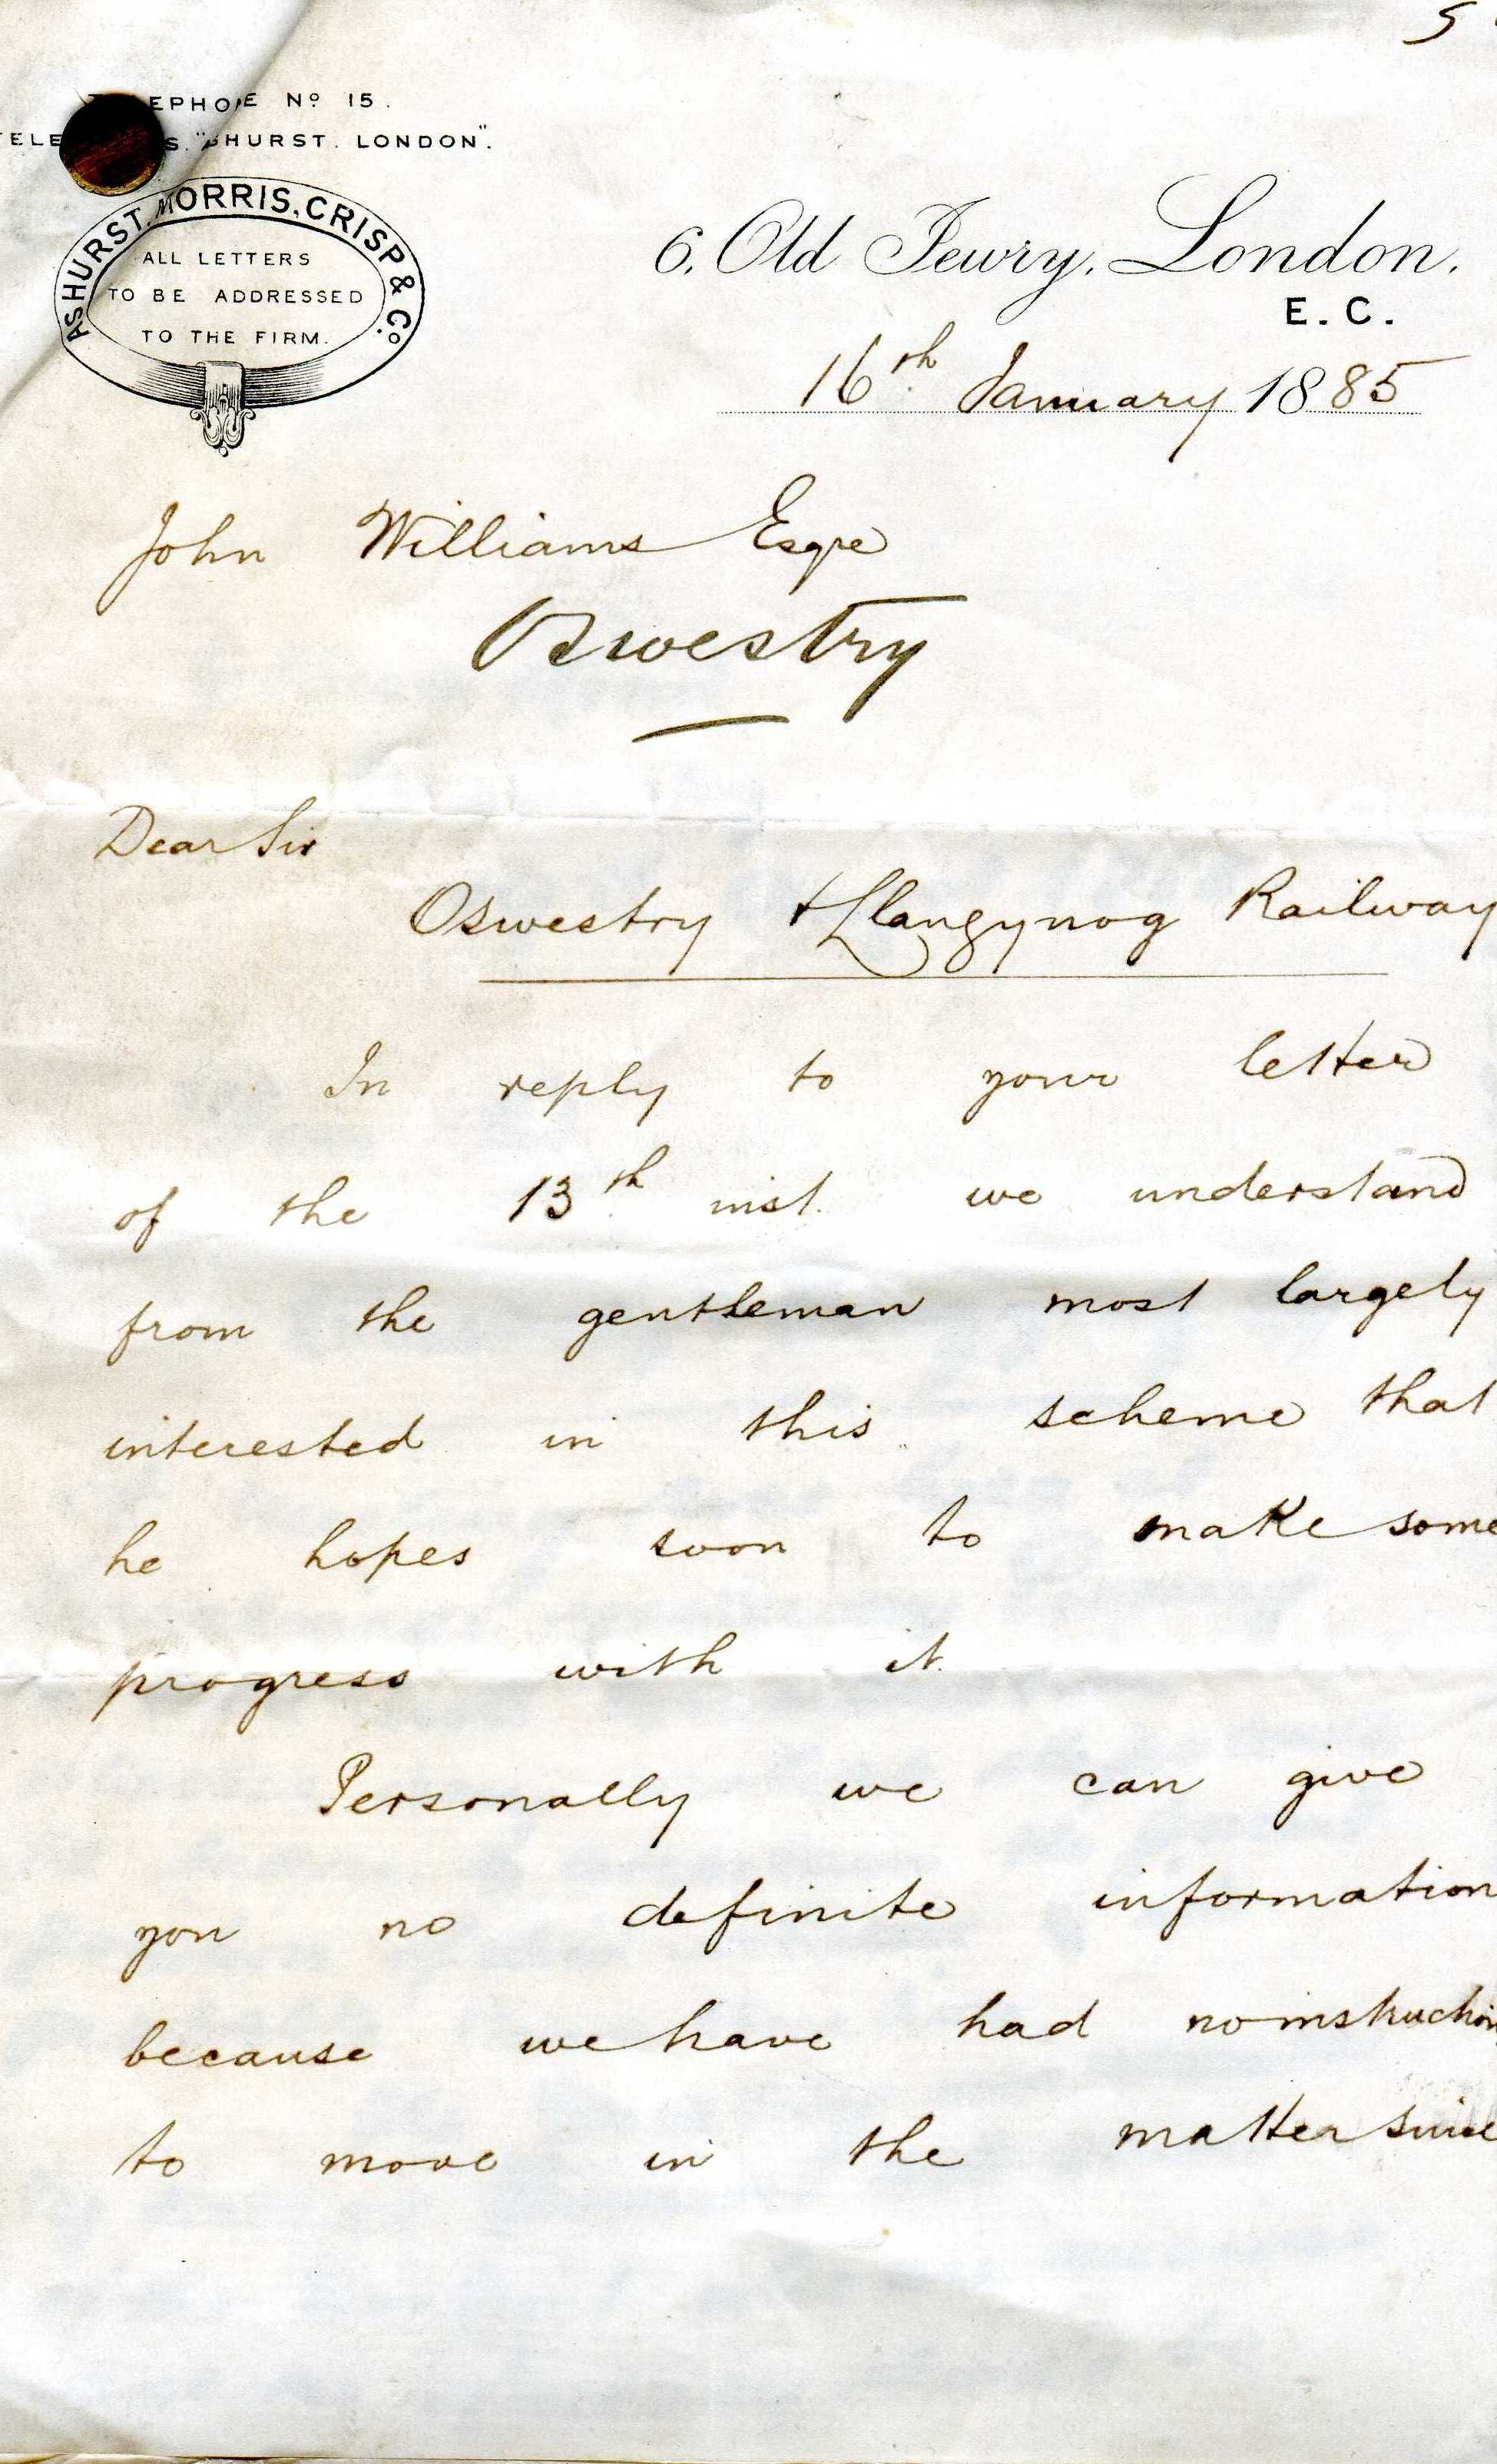 5
EPHONE Nº 15.
TELE S. "SHURST. LONDON".
ASHURST, MORRIS, CRISP & Cº
ALL LETTERS
TO BE ADDRESSED
TO THE FIRM.
6, Old Jewry, London,
E. C.
16th January 1885
John Williams Esqre
Oswestry
Dear Sir
Oswestry & Llangynog Railway
In reply to your letter
of the 13th inst. we understand
from the gentleman most largely
interested in this scheme that
he hopes soon to make some
progress with it.
Personally we can give
you no definite information
because we have had no instruction
to move in the matter since